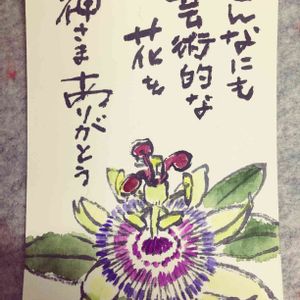 こんなにも
芸術的な
花を
神さま ありがとう